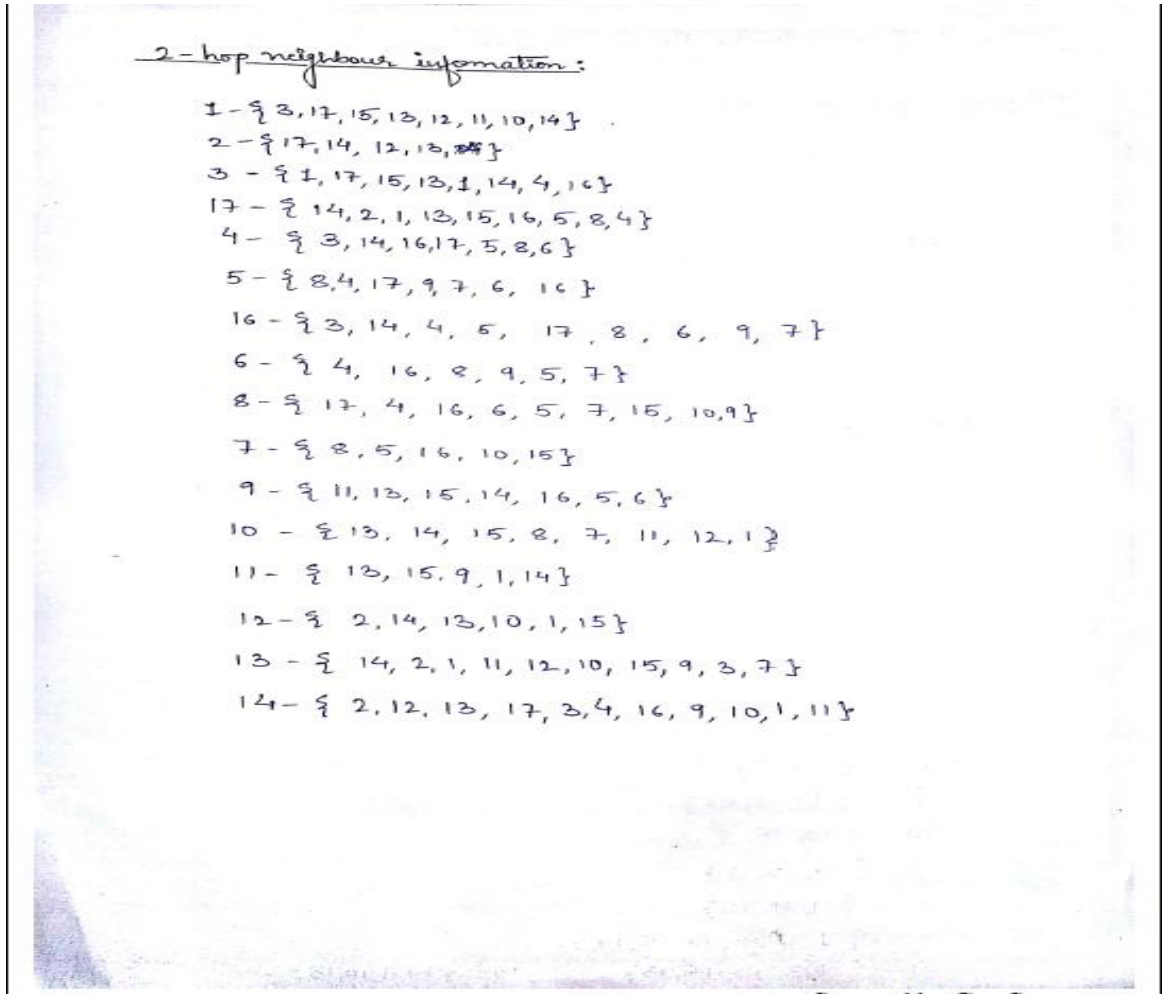 2-hop neighbour infomation :
1 - { 3, 17, 15, 13, 12, 11, 10, 14 }
2 - { 17, 14, 12, 13, }
3 - { 1, 17, 15, 13, 1, 14, 4, 16 }
17 - { 14, 2, 1, 13, 15, 16, 5, 8, 4 }
4 - { 3, 14, 16, 17, 5, 8, 6 }
5 - { 8, 4, 17, 9, 7, 6, 16 }
16 - { 3, 14, 4, 5, 17, 8, 6, 9, 7 }
6 - { 4, 16, 8, 9, 5, 7 }
8 - { 17, 4, 16, 6, 5, 7, 15, 10, 9 }
7 - { 8, 5, 16, 10, 15 }
9 - { 11, 13, 15, 14, 16, 5, 6 }
10 - { 13, 14, 15, 8, 7, 11, 12, 1 }
11 - { 13, 15, 9, 1, 14 }
12 - { 2, 14, 13, 10, 1, 15 }
13 - { 14, 2, 1, 11, 12, 10, 15, 9, 3, 7 }
14 - { 2, 12, 13, 17, 3, 4, 16, 9, 10, 1, 11 }